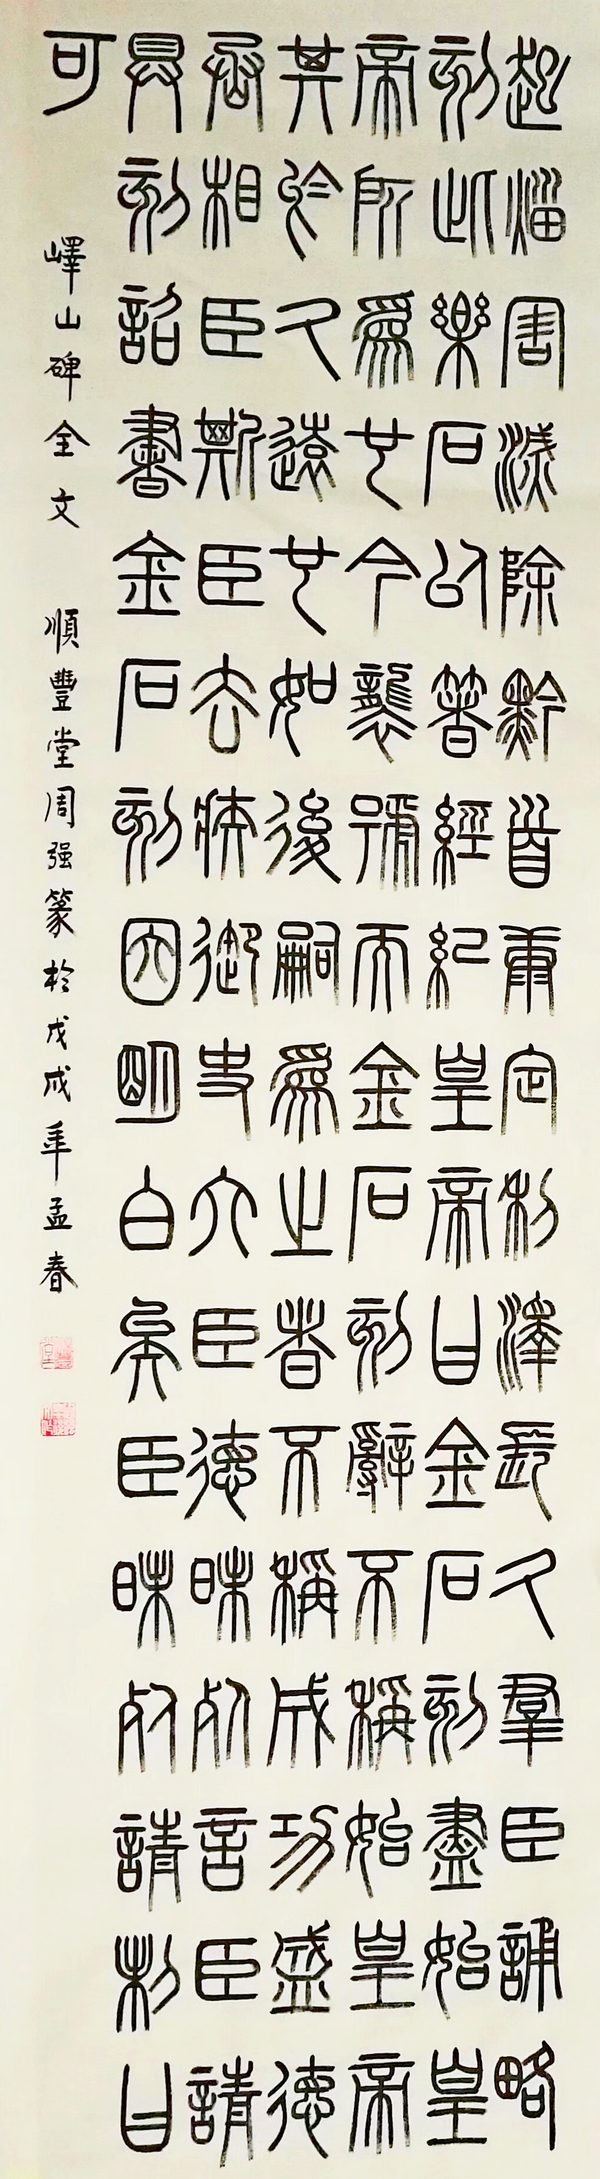 起災害滅除黔首康定利澤長久羣臣誦略
刻此樂石以著經紀皇帝曰金石刻盡始皇
帝所爲也今襲號而金石刻辭不稱始皇帝
其於久遠也如後嗣爲之者不稱成功盛德
丞相臣斯臣去疾御史大臣德昧死言臣請
具刻詔書金石刻因明白矣臣昧死請制曰
可
嶧山碑全文 順豐堂周强篆於戊戌年孟春